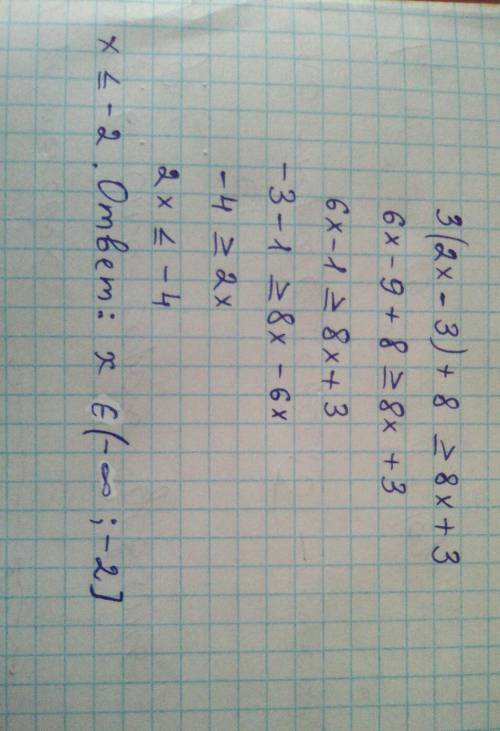 3(2x - 3) + 8 ≥ 8x + 3
6x - 9 + 8 ≥ 8x + 3
6x - 1 ≥ 8x + 3
-3 - 1 ≥ 8x - 6x
-4 ≥ 2x
2x ≤ -4
x ≤ -2. Ответ: x ∈ (-∞; -2]